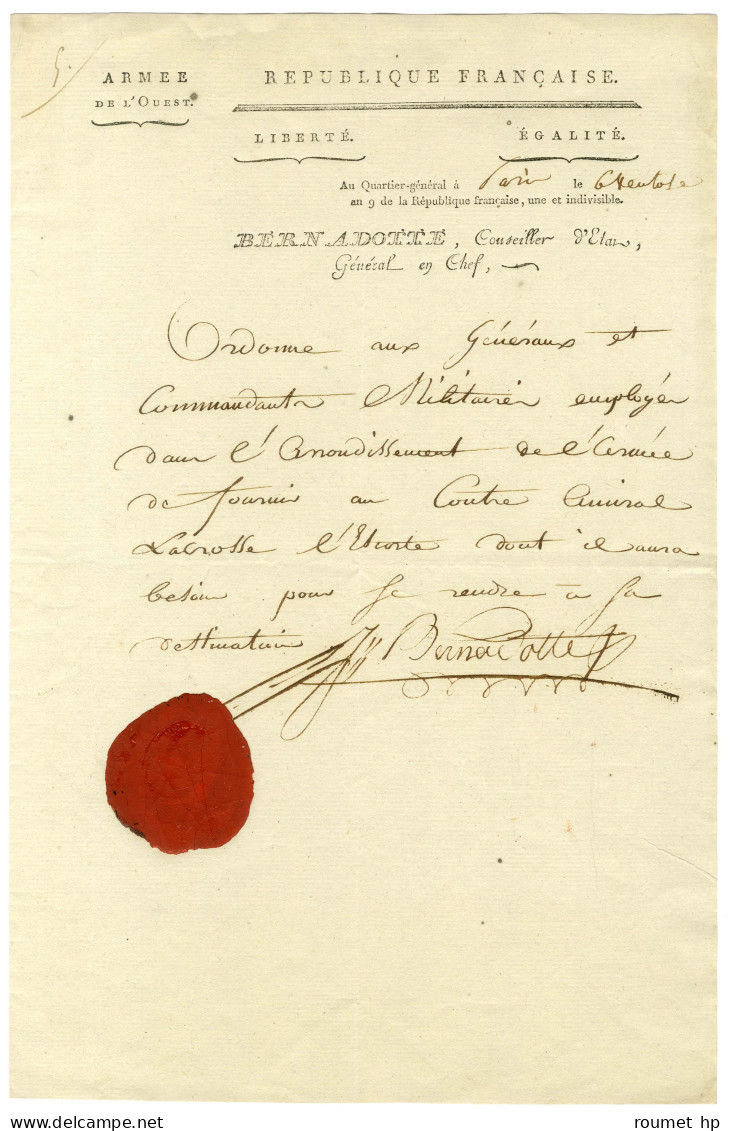 5.
ARMEE
DE L'OUEST.
REPUBLIQUE FRANÇAISE.
LIBERTÉ.
ÉGALITÉ.
Au Quartier-général à Paris le 6 Ventose
an 9 de la République française, une et indivisible.
BERNADOTTE, Conseiller d'Etat,
Général en Chef,
Ordonne aux Généraux et
Commandants Militaires employés
dans l'Arrondissement de l'Armée
de fournir au Contre Amiral
Lacrosse l'Escorte dont il aura
besoin pour se rendre à sa
destination
Bernadotte
roumet hp